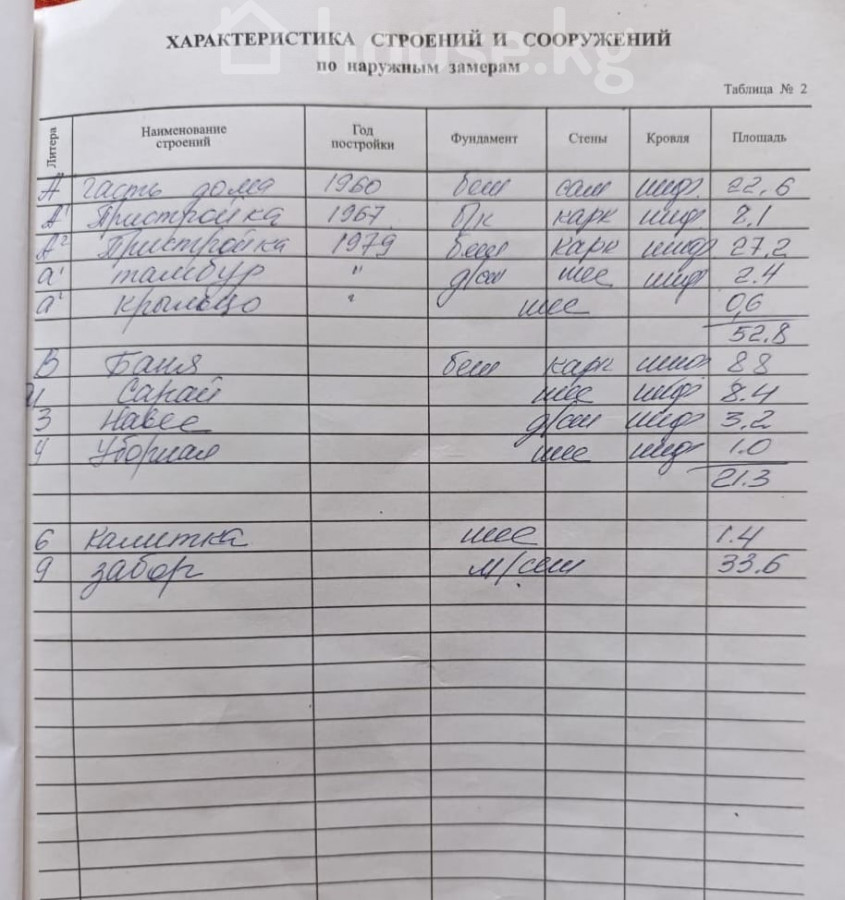 house.kg
ХАРАКТЕРИСТИКА СТРОЕНИЙ И СООРУЖЕНИЙ
по наружным замерам
Таблица № 2
Литера Наименование строений Год постройки Фундамент Стены Кровля Площадь
А часть дома 1960 беш сам шиф. 22,6
А¹ Пристройка 1967 б/к карк шиф.
А² Пристройка 1979 беш карк шиф 27,2
а¹ тамбур " д/сш шее шиф 2.4
а² крыльцо " шее 0,6
52,8
В Баня беш карк шиф 88
Сарай шее шиф 8.4
3 Навес д/сш шиф 3.2
4 Уборная шее шиф 1.0
21.3
6 Калитка шее 1.4
9 забор м/сеш 33.6